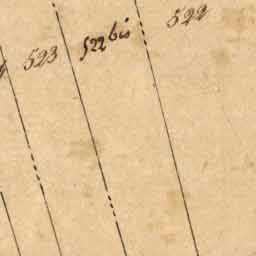 523
522 bis
522